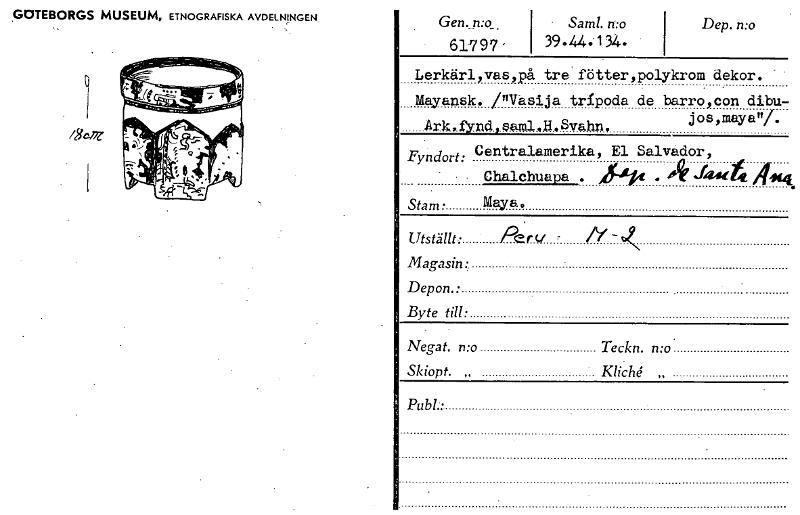 GÖTEBORGS MUSEUM, ETNOGRAFISKA AVDELNINGEN
18cm
Gen. n:o Saml. n:o Dep. n:o
61797 39.44.134.
Lerkärl,vas,på tre fötter,polykrom dekor.
Mayansk. /"Vasija trípoda de barro,con dibu-
jos,maya"/.
Ark.fynd,saml.H.Svahn.
Fyndort: Centralamerika, El Salvador,
Chalchuapa . Dep. de Santa Ana
Stam: Maya.
Utställt: Peru M-2
Magasin:
Depon.:
Byte till:
Negat. n:o Teckn. n:o
Skiopt. „ Kliché „
Publ.: